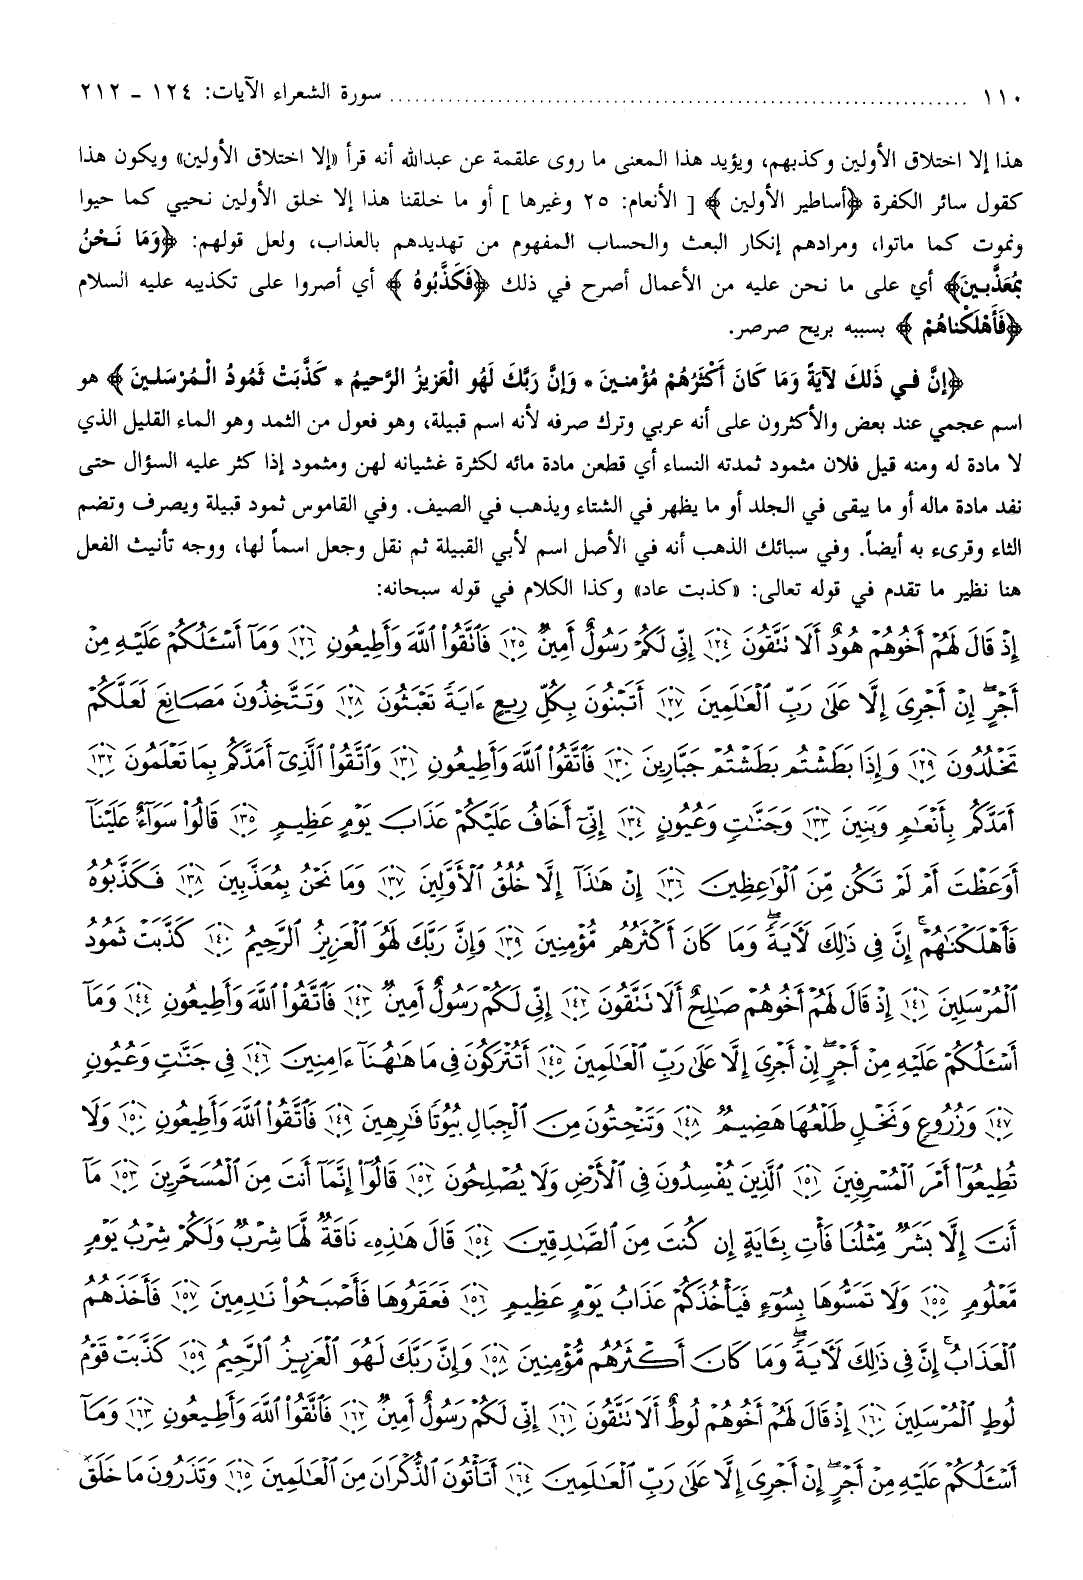 ١١٠ ........................ سورة الشعراء الآيات: ١٢٤ ـ ٢١٢
هذا إلا اختلاق الأولين وكذبهم، ويؤيد هذا المعنى ما روى علقمة عن عبدالله أنه قرأ «إلا اختلاق الأولين» ويكون هذا
كقول سائر الكفرة ﴿أساطير الأولين ﴾ [ الأنعام: ٢٥ وغيرها ] أو ما خلقنا هذا إلا خلق الأولين نحيي كما حيوا
ونموت كما ماتوا، ومرادهم إنكار البعث والحساب المفهوم من تهديدهم بالعذاب، ولعل قولهم: ﴿وَمَا نَحْنُ
بِمُعَذَّبينَ﴾ أي على ما نحن عليه من الأعمال أصرح في ذلك ﴿فَكَذَّبُوهُ ﴾ أي أصروا على تكذيبه عليه السلام
﴿فَأَهْلَكْناهُمْ ﴾ بسببه بريح صرصر.
﴿إنَّ فـي ذَلكَ لآيَةً وَمَا كَانَ أَكْثَرُهُمْ مُؤْمنـينَ * وَإنَّ رَبَّكَ لَهُو الْعَزيزُ الرَّحيمُ * كَذَّبَتْ ثَمُودُ الْـمُرْسَلـينَ ﴾ هو
اسم عجمي عند بعض والأكثرون على أنه عربي وترك صرفه لأنه اسم قبيلة، وهو فعول من الثمد وهو الماء القليل الذي
لا مادة له ومنه قيل فلان مثمود ثمدته النساء أي قطعن مادة مائه لكثرة غشيانه لهن ومثمود إذا كثر عليه السؤال حتى
نفد مادة ماله أو ما يبقى في الجلد أو ما يظهر في الشتاء ويذهب في الصيف. وفي القاموس ثمود قبيلة ويصرف وتضم
الثاء وقرىء به أيضاً. وفي سبائك الذهب أنه في الأصل اسم لأبي القبيلة ثم نقل وجعل اسماً لها، ووجه تأنيث الفعل
هنا نظير ما تقدم في قوله تعالى: «كذبت عاد» وكذا الكلام في قوله سبحانه:
إِذْ قَالَ لَهُمْ أَخُوهُمْ هُودٌ أَلَا تَتَّقُونَ ١٢٤ إِنِّي لَكُمْ رَسُولٌ أَمِينٌ ١٢٥ فَاتَّقُوا اللَّهَ وَأَطِيعُونِ ١٢٦ وَمَا أَسْـَٔلُكُمْ عَلَيْهِ مِنْ
أَجْرٍ إِنْ أَجْرِيَ إِلَّا عَلَىٰ رَبِّ الْعَالَمِينَ ١٢٧ أَتَبْنُونَ بِكُلِّ رِيعٍ ءَايَةً تَعْبَثُونَ ١٢٨ وَتَتَّخِذُونَ مَصَانِعَ لَعَلَّكُمْ
تَخْلُدُونَ ١٢٩ وَإِذَا بَطَشْتُم بَطَشْتُمْ جَبَّارِينَ ١٣٠ فَاتَّقُوا اللَّهَ وَأَطِيعُونِ ١٣١ وَاتَّقُوا الَّذِي أَمَدَّكُم بِمَا تَعْلَمُونَ ١٣٢
أَمَدَّكُم بِأَنْعَامٍ وَبَنِينَ ١٣٣ وَجَنَّاتٍ وَعُيُونٍ ١٣٤ إِنِّي أَخَافُ عَلَيْكُمْ عَذَابَ يَوْمٍ عَظِيمٍ ١٣٥ قَالُوا سَوَاءٌ عَلَيْنَا
أَوَعَظْتَ أَمْ لَمْ تَكُن مِّنَ الْوَاعِظِينَ ١٣٦ إِنْ هَٰذَا إِلَّا خُلُقُ الْأَوَّلِينَ ١٣٧ وَمَا نَحْنُ بِمُعَذَّبِينَ ١٣٨ فَكَذَّبُوهُ
فَأَهْلَكْنَاهُمْ إِنَّ فِي ذَٰلِكَ لَآيَةً وَمَا كَانَ أَكْثَرُهُم مُّؤْمِنِينَ ١٣٩ وَإِنَّ رَبَّكَ لَهُوَ الْعَزِيزُ الرَّحِيمُ ١٤٠ كَذَّبَتْ ثَمُودُ
الْمُرْسَلِينَ ١٤١ إِذْ قَالَ لَهُمْ أَخُوهُمْ صَالِحٌ أَلَا تَتَّقُونَ ١٤٢ إِنِّي لَكُمْ رَسُولٌ أَمِينٌ ١٤٣ فَاتَّقُوا اللَّهَ وَأَطِيعُونِ ١٤٤ وَمَا
أَسْـَٔلُكُمْ عَلَيْهِ مِنْ أَجْرٍ إِنْ أَجْرِيَ إِلَّا عَلَىٰ رَبِّ الْعَالَمِينَ ١٤٥ أَتُتْرَكُونَ فِي مَا هَاهُنَا ءَامِنِينَ ١٤٦ فِي جَنَّاتٍ وَعُيُونٍ
١٤٧ وَزُرُوعٍ وَنَخْلٍ طَلْعُهَا هَضِيمٌ ١٤٨ وَتَنْحِتُونَ مِنَ الْجِبَالِ بُيُوتًا فَارِهِينَ ١٤٩ فَاتَّقُوا اللَّهَ وَأَطِيعُونِ ١٥٠ وَلَا
تُطِيعُوا أَمْرَ الْمُسْرِفِينَ ١٥١ الَّذِينَ يُفْسِدُونَ فِي الْأَرْضِ وَلَا يُصْلِحُونَ ١٥٢ قَالُوا إِنَّمَا أَنتَ مِنَ الْمُسَحَّرِينَ ١٥٣ مَا
أَنتَ إِلَّا بَشَرٌ مِّثْلُنَا فَأْتِ بِـَٔايَةٍ إِن كُنتَ مِنَ الصَّادِقِينَ ١٥٤ قَالَ هَٰذِهِ نَاقَةٌ لَّهَا شِرْبٌ وَلَكُمْ شِرْبُ يَوْمٍ
مَّعْلُومٍ ١٥٥ وَلَا تَمَسُّوهَا بِسُوءٍ فَيَأْخُذَكُمْ عَذَابُ يَوْمٍ عَظِيمٍ ١٥٦ فَعَقَرُوهَا فَأَصْبَحُوا نَادِمِينَ ١٥٧ فَأَخَذَهُمُ
الْعَذَابُ إِنَّ فِي ذَٰلِكَ لَآيَةً وَمَا كَانَ أَكْثَرُهُم مُّؤْمِنِينَ ١٥٨ وَإِنَّ رَبَّكَ لَهُوَ الْعَزِيزُ الرَّحِيمُ ١٥٩ كَذَّبَتْ قَوْمُ
لُوطٍ الْمُرْسَلِينَ ١٦٠ إِذْ قَالَ لَهُمْ أَخُوهُمْ لُوطٌ أَلَا تَتَّقُونَ ١٦١ إِنِّي لَكُمْ رَسُولٌ أَمِينٌ ١٦٢ فَاتَّقُوا اللَّهَ وَأَطِيعُونِ ١٦٣ وَمَا
أَسْـَٔلُكُمْ عَلَيْهِ مِنْ أَجْرٍ إِنْ أَجْرِيَ إِلَّا عَلَىٰ رَبِّ الْعَالَمِينَ ١٦٤ أَتَأْتُونَ الذُّكْرَانَ مِنَ الْعَالَمِينَ ١٦٥ وَتَذَرُونَ مَا خَلَقَ